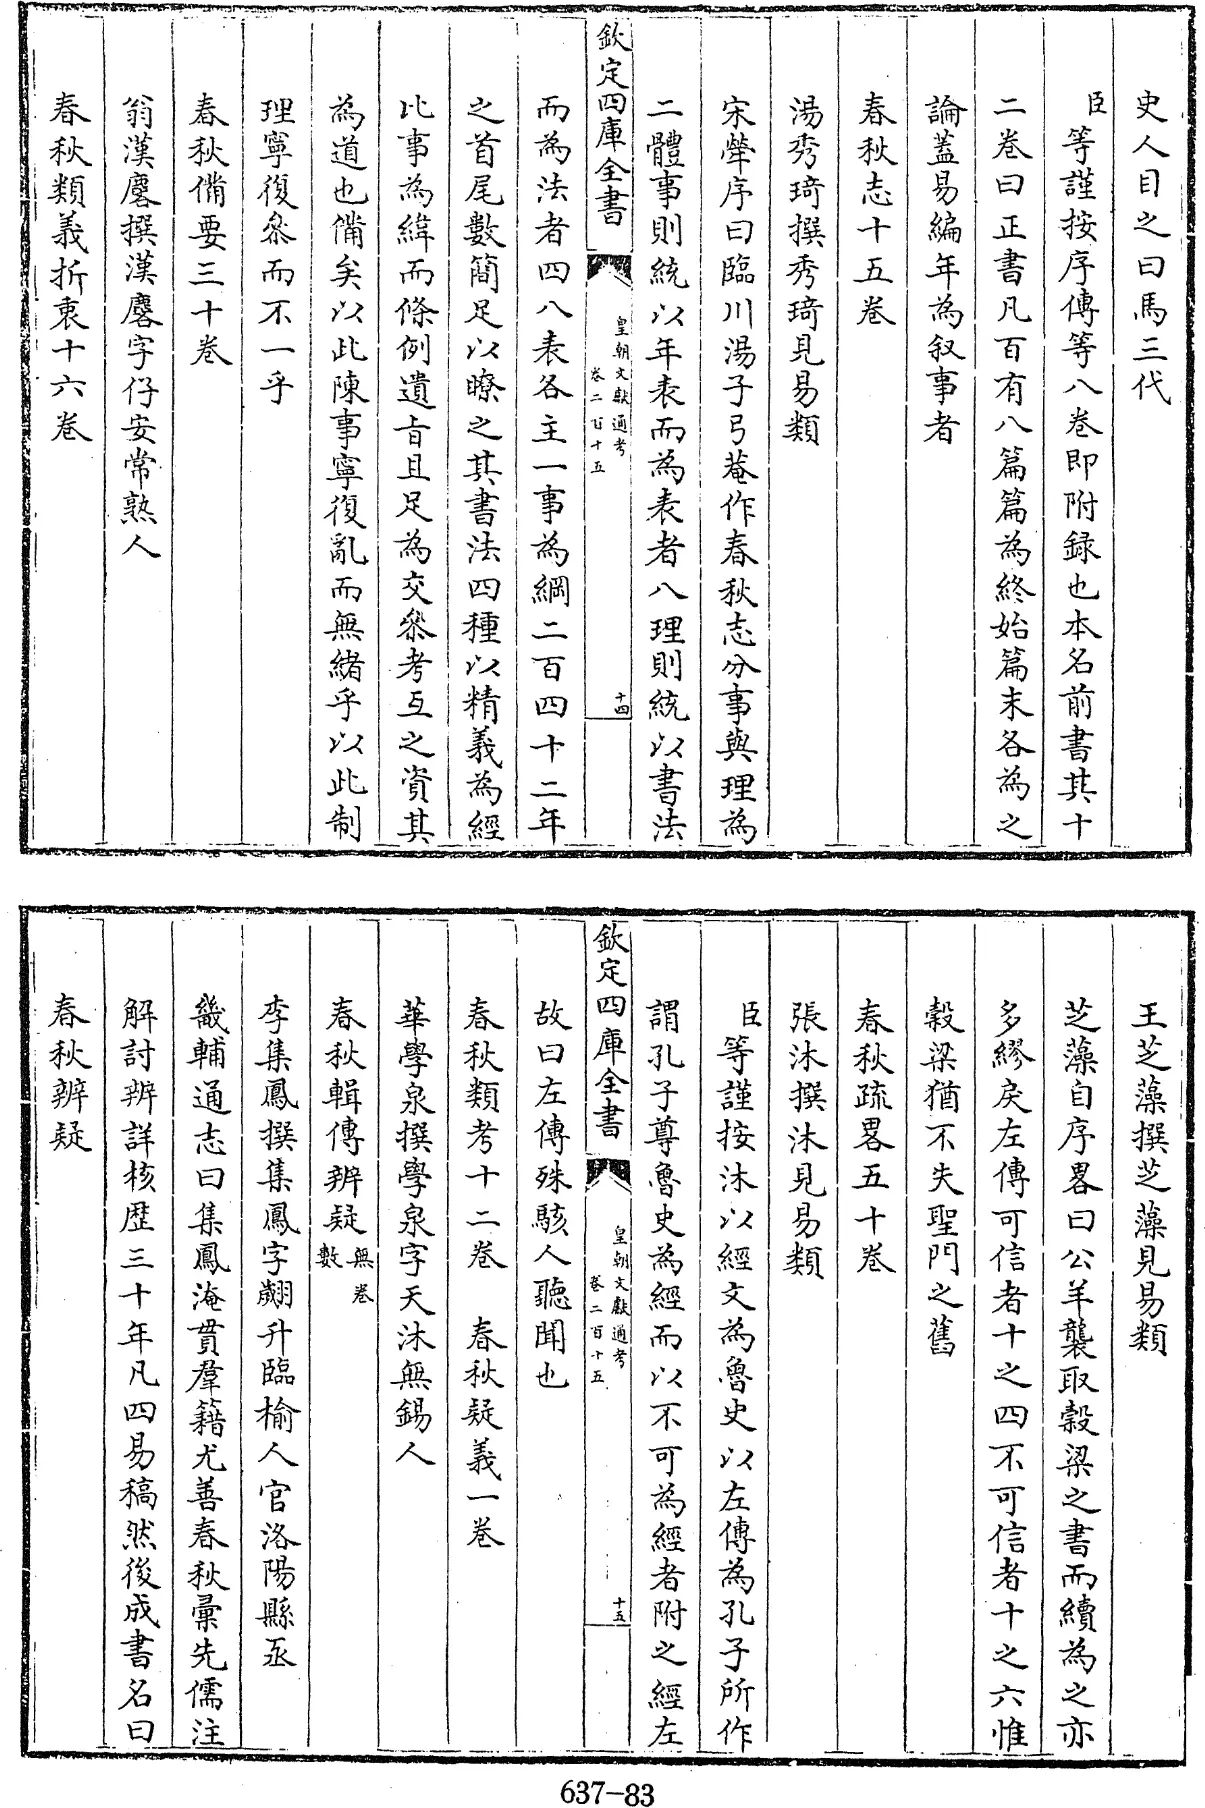 史人目之曰馬三代
臣等謹按序傳等八巻即附録也本名前書其十
二巻曰正書凡百有八篇篇為終始篇末各為之
論蓋易編年為叙事者
春秋志十五巻
湯秀琦撰秀琦見易類
宋犖序曰臨川湯子弓菴作春秋志分事與理為
二體事則統以年表而為表者八理則統以書法
欽定四庫全書
皇朝文獻通考
巻二百十五
十四
而為法者四八表各主一事為綱二百四十二年
之首尾數簡足以瞭之其書法四種以精義為經
比事為緯而條例遺㫖且足為交叅考互之資其
為道也備矣以此陳事寧復亂而無緒乎以此制
理寧復叅而不一乎
春秋備要三十巻
翁漢麐撰漢麐字仔安常熟人
春秋類義折衷十六巻
王芝藻撰芝藻見易類
芝藻自序畧曰公羊襲取穀梁之書而續為之亦
多繆戾左傳可信者十之四不可信者十之六惟
穀梁猶不失聖門之舊
春秋疏畧五十巻
張沐撰沐見易類
臣等謹按沐以經文為魯史以左傳為孔子所作
謂孔子尊魯史為經而以不可為經者附之經左
欽定四庫全書
皇朝文獻通考
巻二百十五
十五
故曰左傳殊駭人聽聞也
春秋類考十二巻　春秋疑義一巻
華學泉撰學泉字天沐無錫人
春秋輯傳辨疑無巻數
李集鳳撰集鳳字翽升臨榆人官洛陽縣丞
畿輔通志曰集鳳淹貫羣籍尤善春秋彙先儒注
解討辨詳核歴三十年凡四易稿然後成書名曰
春秋辨疑
637-83